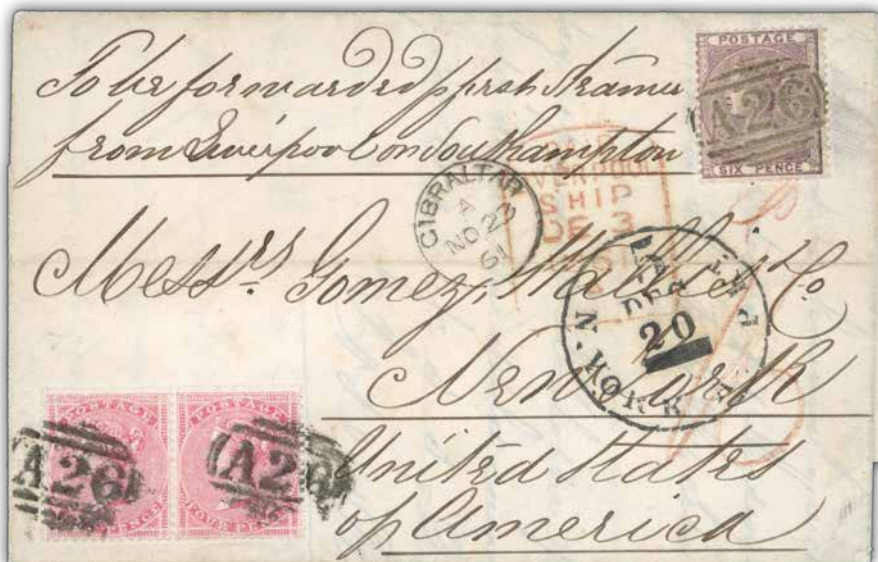 To be forwarded p first Steamer
from Liverpool or Southampton
POSTAGE
A26
SIX PENCE
GIBRALTAR
A
NO 23
61
LIVERPOOL
SHIP
DE 3
Messrs. Gomez, Wallis & Co
New York
United States
of America
N. YORK
PAID
DEC
20
POSTAGE
POSTAGE
A26
A26
PENCE
FOUR PENCE